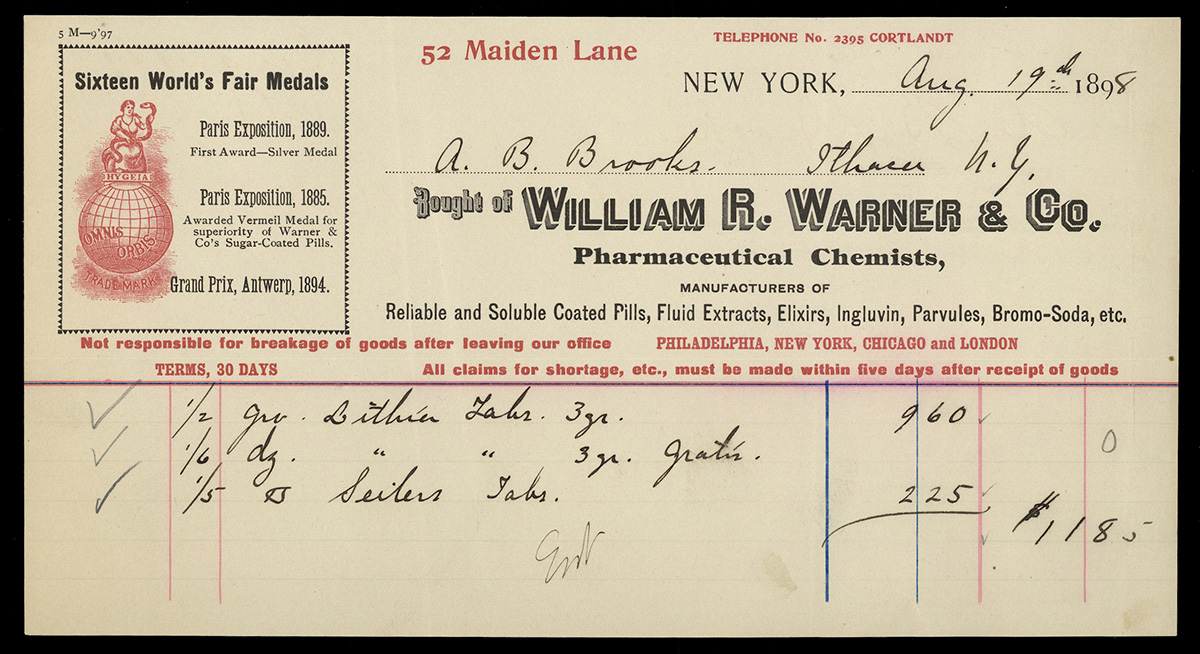 5 M—9'97
52 Maiden Lane
TELEPHONE No. 2395 CORTLANDT
NEW YORK, Aug. 19th 1898
Sixteen World's Fair Medals
Paris Exposition, 1889.
First Award—Silver Medal
Paris Exposition, 1885.
Awarded Vermeil Medal for
superiority of Warner &
Co's Sugar-Coated Pills.
Grand Prix, Antwerp, 1894.
HYGEIA
OMNIS
ORBIS
TRADE MARK
A. B. Brooks. Ithaca N.Y.
Bought of WILLIAM R. WARNER & CO.
Pharmaceutical Chemists,
MANUFACTURERS OF
Reliable and Soluble Coated Pills, Fluid Extracts, Elixirs, Ingluvin, Parvules, Bromo-Soda, etc.
Not responsible for breakage of goods after leaving our office PHILADELPHIA, NEW YORK, CHICAGO and LONDON
TERMS, 30 DAYS All claims for shortage, etc., must be made within five days after receipt of goods
1/2 gro. Lithia Tabs. 3gr. 960
1/6 dz. " " 3gr. Gratis. 0
1/5 Seilers Tabs. 225
$1185